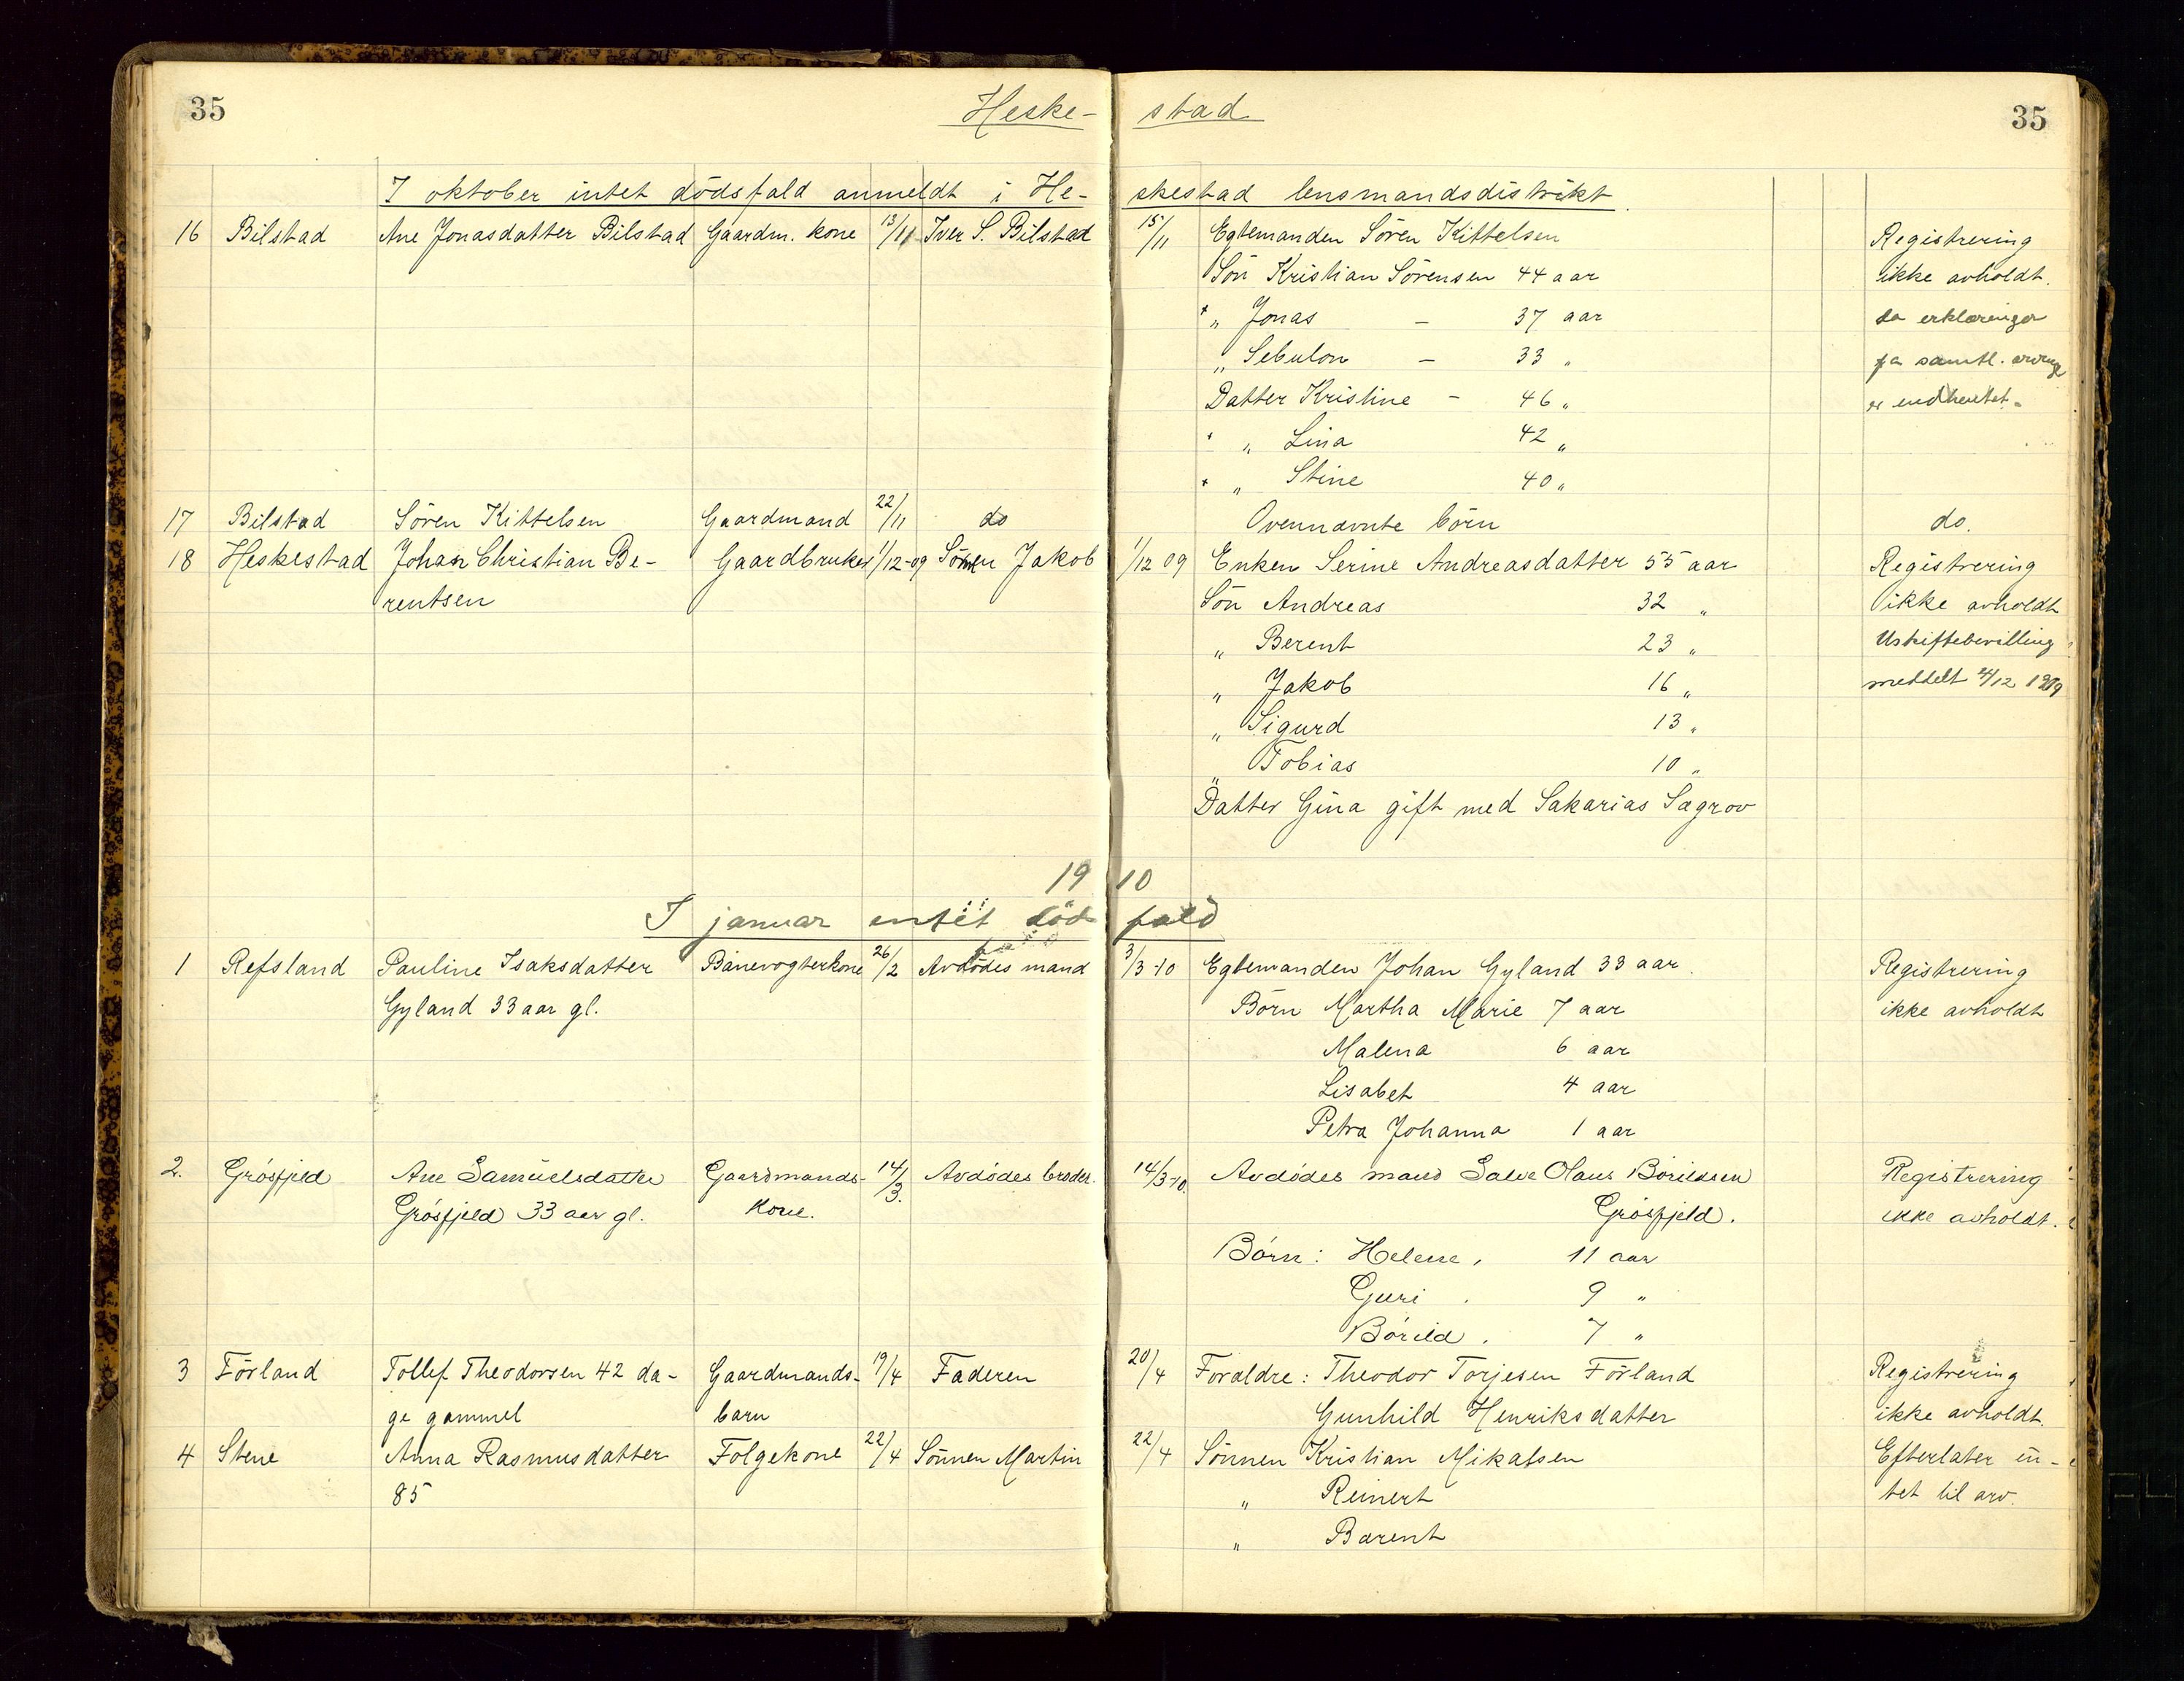 35 Heske- stad 35
I oktober intet dödsfald anmeldt i He- skestad lensmandsdistrikt
16 Bilstad Ane Jonasdatter Bilstad Gaardm. kone 13/11 Iver S. Bilstad 15/11 Egtemanden Sören Kittelsen Registrering
Sön Kristian Sörensen 44 aar ikke avholdt.
+ „ Jonas – 37 aar da erklæringer
„ Sebulon – 33 „ fra samtl.
Datter Kristine – 46 „ er indhentet.
+ „ Lina 42 „
+ „ Stine 40 „
17 Bilstad Sören Kittelsen Gaardmand 22/11 do Ovennævnte börn do.
18 Heskestad Johan Christian Be- Gaardbruker 1/12-09 Sönnen Jakob 1/12 09 Enken Serine Andreasdatter 55 aar Registrering
rentsen Sön Andreas 32 „ ikke avholdt
„ Berent 23 „ Uskiftebevilling
„ Jakob 16 „ meddelt /12 1909
„ Sigurd 13 „
„ Tobias 10 „
Datter Gina gift med Sakarias Sægrov
1910
I januar intet död fald
1 Refsland Pauline Isaksdatter Banevogterkone 26/2 Avdödes mand 3/3-10 Egtemanden Johan Gyland 33 aar. Registrering
Gyland 33 aar gl. Börn Martha Marie 7 aar ikke avholdt
Malena 6 aar
Lisabet 4 aar
Petra Johanna 1 aar
2. Grósfjeld Ane Samuelsdatter Gaardmands- 14/3. Avdödes broder. 14/3-10. Avdödes mand Salve Olaus Börildsen Registrering
Grósfjeld 33 aar gl. kone. Grósfjeld. ikke avholdt.
Börn: Helene, 11 aar
Guri . 9 „
Börild . 7 „
3 Förland Tollef Theodorsen 42 da- Gaardmands- 19/4 Faderen 20/4 Foraldre: Theodor Torjesen Förland Registrering
ge gammel barn Gunhild Henriksdatter ikke avholdt.
4 Stene Anna Rasmusdatter Folgekone 22/4 Sönnen Martin 22/4 Sönnen Kristian Mikalsen Efterlater in-
85 „ Reinert tet til arv.
„ Barent